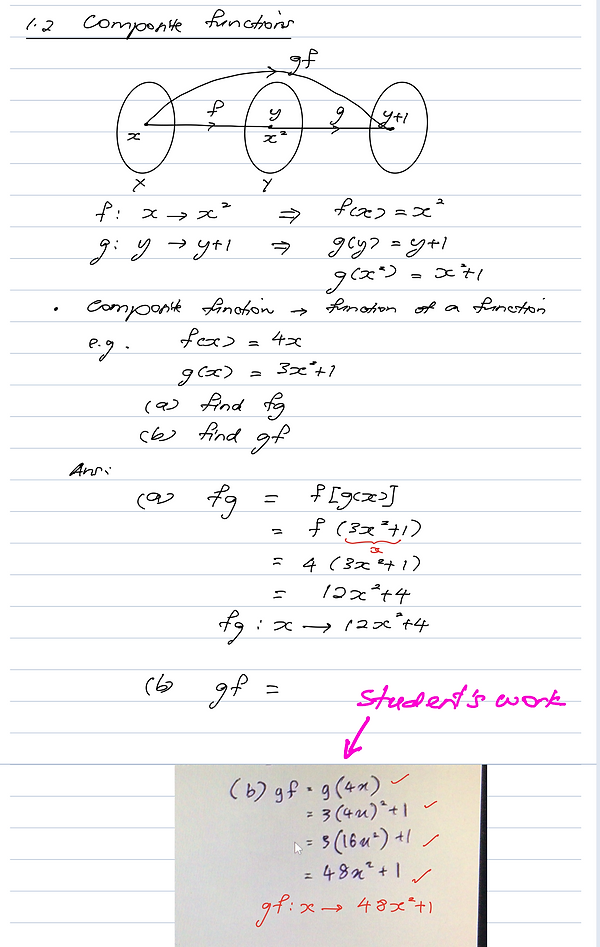 1.2 Composite functions
gf
f y g y+1
x x²
X Y
f: x → x² ⇒ f(x) = x²
g: y → y+1 ⇒ g(y) = y+1
g(x²) = x²+1
• Composite function → function of a function
e.g. f(x) = 4x
g(x) = 3x²+1
(a) find fg
(b) find gf
Ans:
(a) fg = f[g(x)]
= f (3x²+1)
x
= 4 (3x²+1)
= 12x²+4
fg : x → 12x²+4
(b) gf =
Student's work
(b) gf = g(4x) ✓
= 3(4x)²+1 ✓
= 3(16x²)+1 ✓
= 48x²+1 ✓
gf: x → 48x²+1